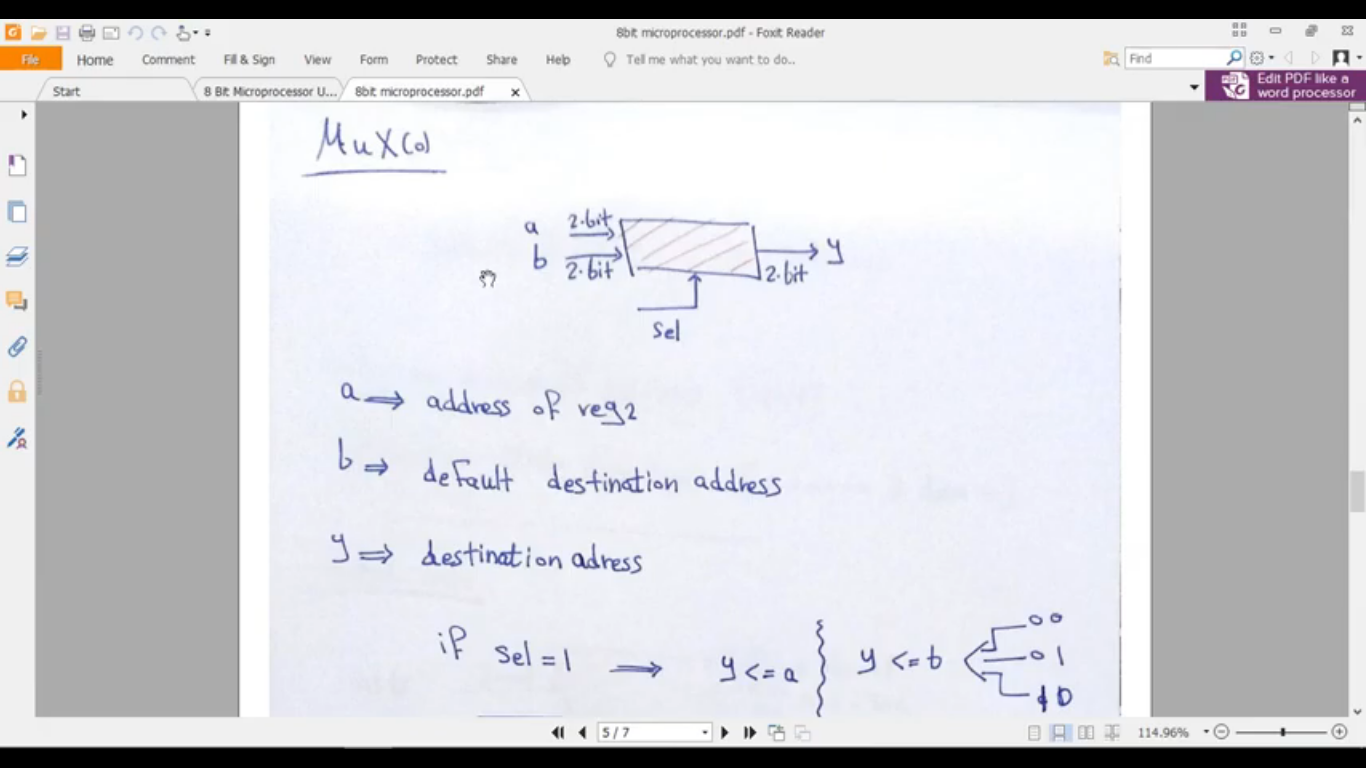 8bit microprocessor.pdf - Foxit Reader
File Home Comment Fill & Sign View Form Protect Share Help Tell me what you want to do.. Find
Edit PDF like a
word processor
Start 8 Bit Microprocessor U... 8bit microprocessor.pdf
MUX(0)
a 2.bit
b 2.bit
y
2.bit
Sel
a ⇒ address of reg2
b ⇒ default destination address
y ⇒ destination adress
if Sel = 1 ⇒ y <= a } y <= b
00
01
10
5 / 7
114.96%